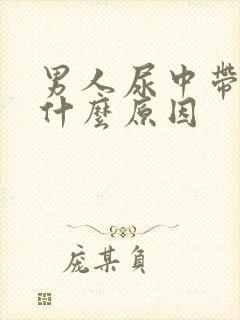 男人尿中帶
什麼原因
庞某負